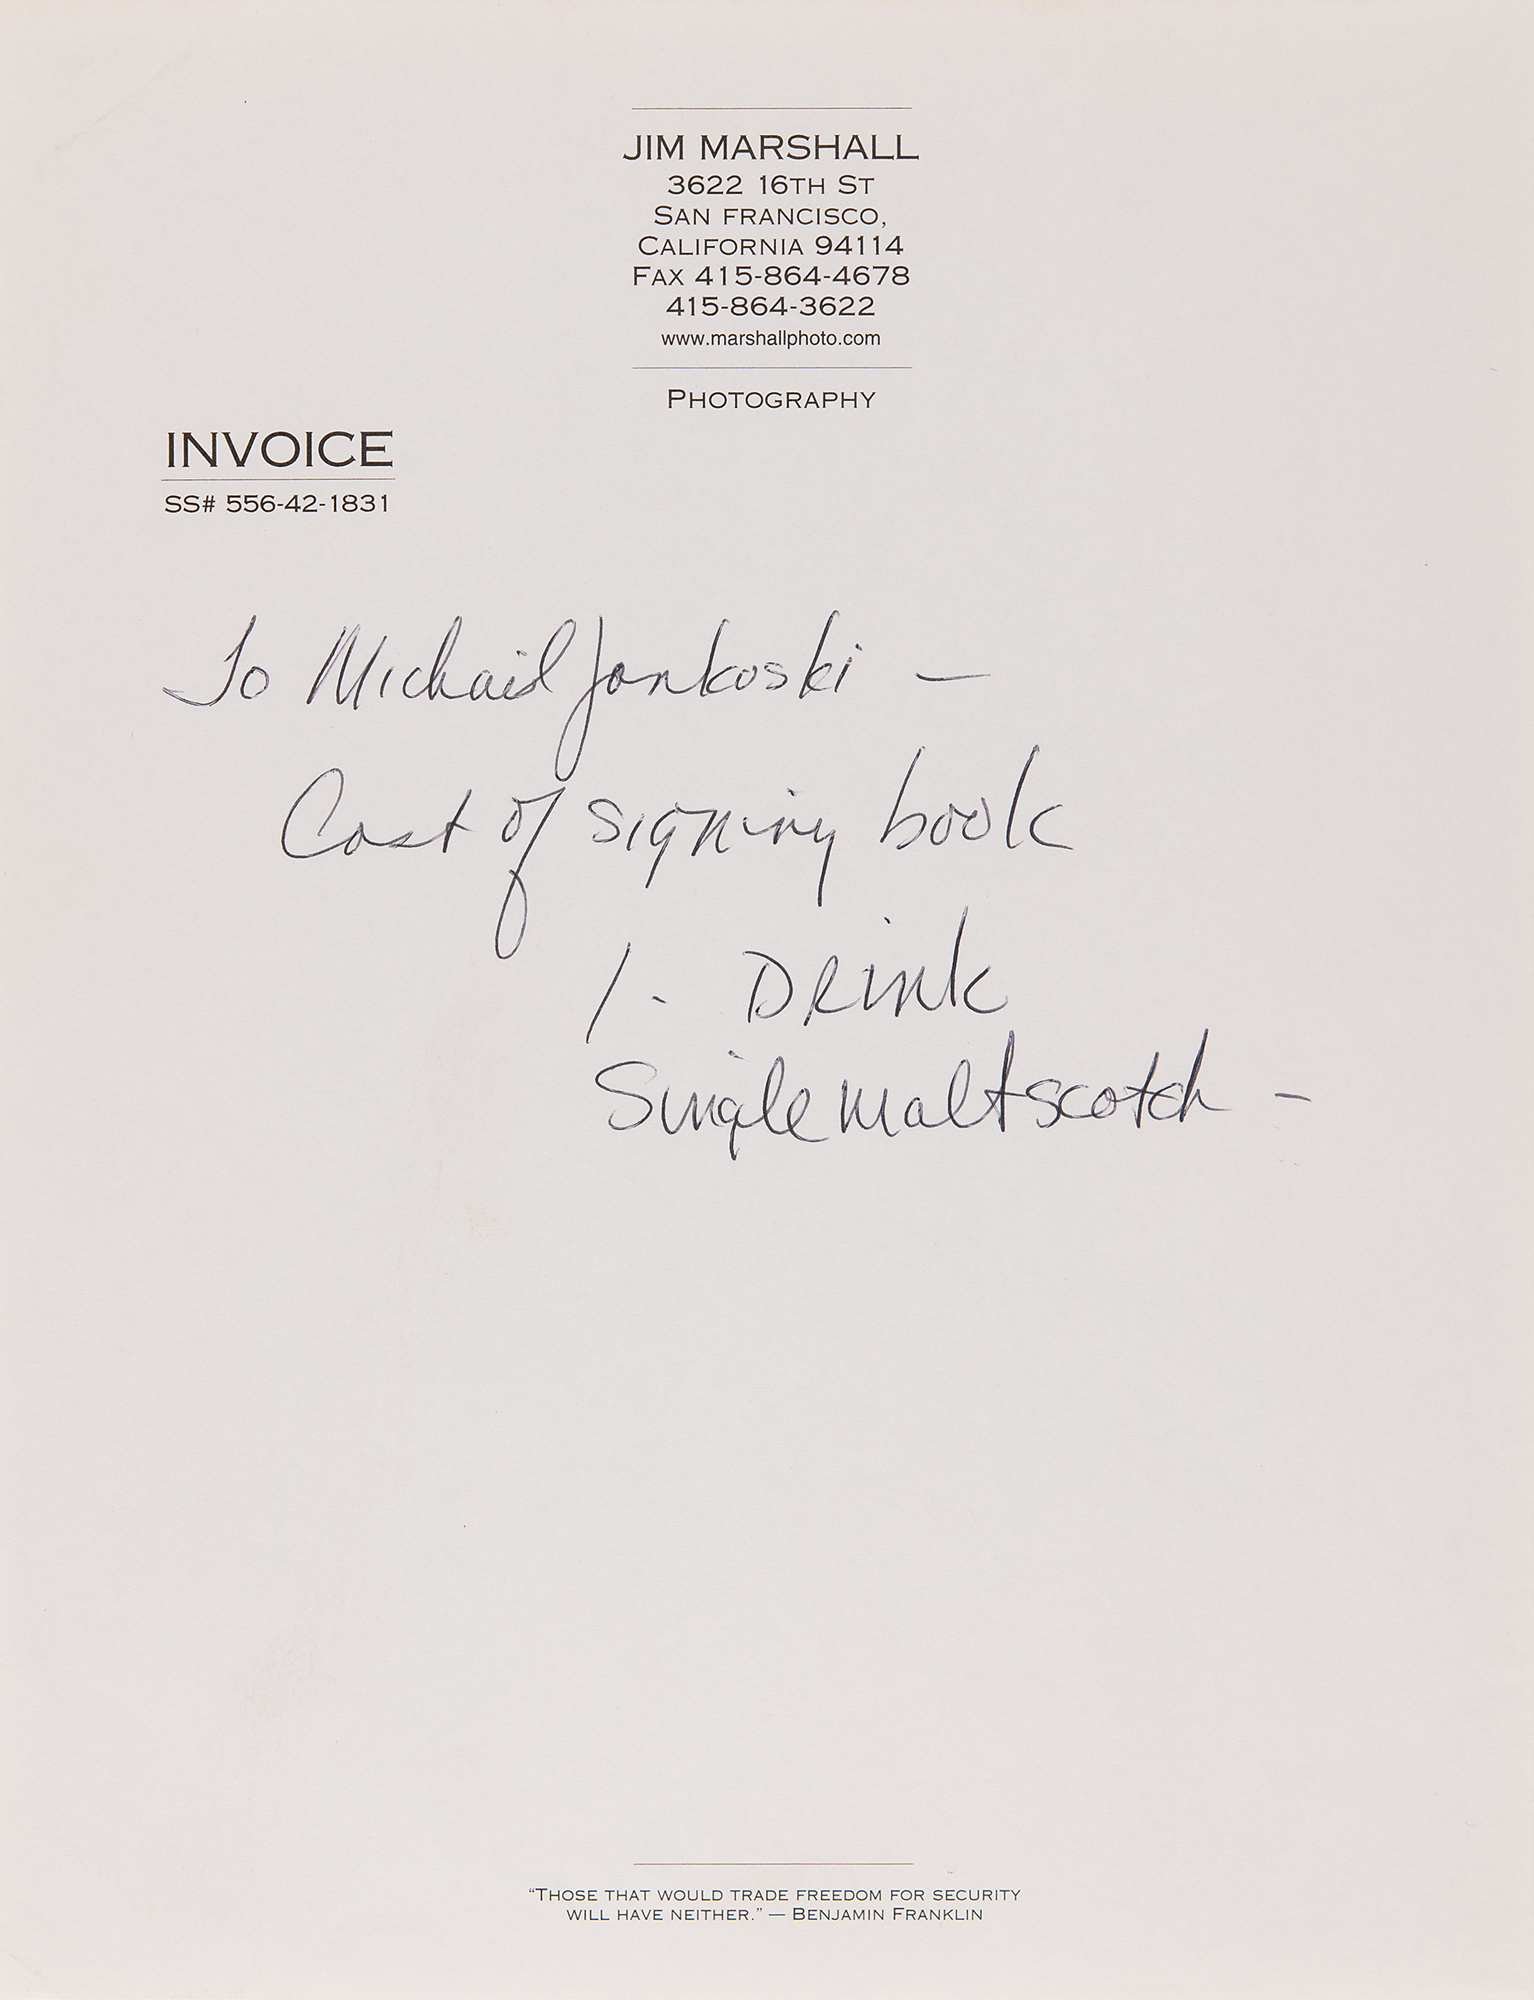 JIM MARSHALL
3622 16TH ST
SAN FRANCISCO,
CALIFORNIA 94114
FAX 415-864-4678
415-864-3622
www.marshallphoto.com
PHOTOGRAPHY
INVOICE
SS# 556-42-1831
To Michail Jankoski —
Cost of signing book
1. DRink
Single malt scotch -
“THOSE THAT WOULD TRADE FREEDOM FOR SECURITY
WILL HAVE NEITHER.” — BENJAMIN FRANKLIN